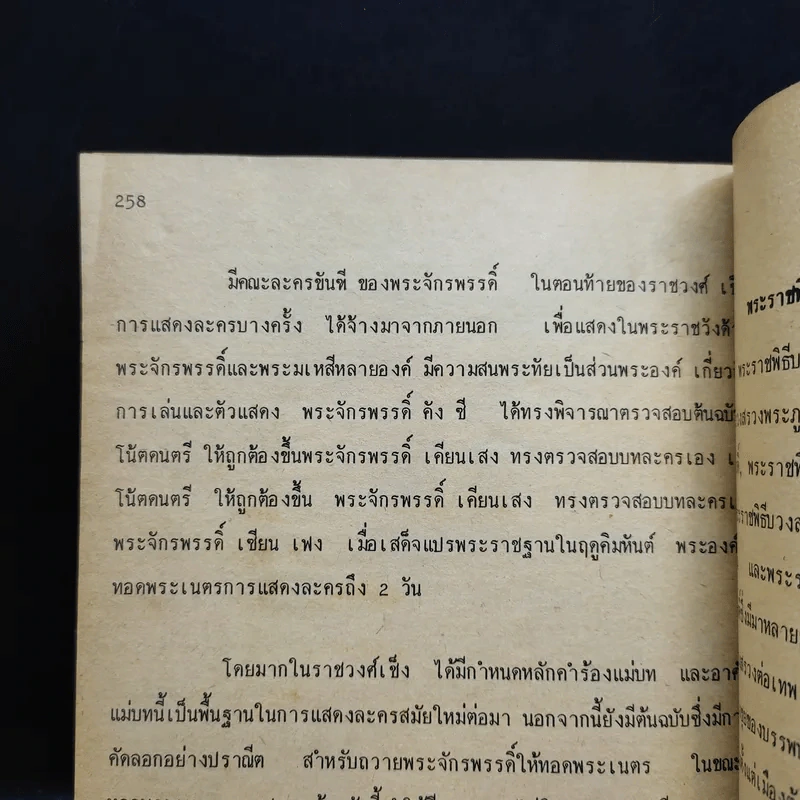 258
มีคณะละครขันที ของพระจักรพรรดิ์ ในตอนท้ายของราชวงศ์
การแสดงละครบางครั้ง ได้จ้างมาจากภายนอก เพื่อแสดงในพระราชวังด้
พระจักรพรรดิ์และพระมเหสีหลายองค์ มีความสนพระทัยเป็นส่วนพระองค์ เกี่ยว
การเล่นและตัวแสดง พระจักรพรรดิ์ คัง ซี ได้ทรงพิจารณาตรวจสอบต้นฉบั
โน้ตดนตรี ให้ถูกต้องขึ้นพระจักรพรรดิ์ เคียนเสง ทรงตรวจสอบบทละครเอง
โน้ตดนตรี ให้ถูกต้องขึ้น พระจักรพรรดิ์ เคียนเสง ทรงตรวจสอบบทละครเ
พระจักรพรรดิ์ เซียน เฟง เมื่อเสด็จแปรพระราชฐานในฤดูคิมหันต์ พระองค์
ทอดพระเนตรการแสดงละครถึง 2 วัน
โดยมากในราชวงศ์เช็ง ได้มีกำหนดหลักคำร้องแม่บท และอา
แม่บทนี้เป็นพื้นฐานในการแสดงละครสมัยใหม่ต่อมา นอกจากนี้ยังมีต้นฉบับซึ่งมีกา
คัดลอกอย่างปราณีต สำหรับถวายพระจักรพรรดิ์ให้ทอดพระเนตร ในขณะ
พระราชพิ
พระราชพิธีบ
สรวงพระภู
พระราชพิ
ราชพิธีบวงส
และพระร
ซึ่งมีมาหลาย
รวงต่อเทพ
ของบรรพ